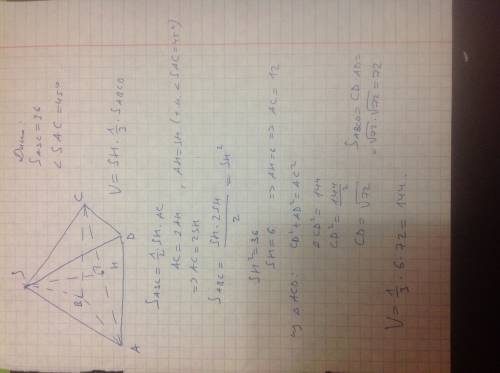 S
B
C
6
H
D
A
Дано:
S_ASC = 36
< SAC = 45°
V = SH · 1/3 · S_ABCD
S_ASC = 1/2 SH · AC
AC = 2AH , AH = SH (т.к. < SAC = 45°)
=> AC = 2SH
S_ASC = SH · 2SH / 2 = SH²
SH² = 36
SH = 6 => AH = 6 => AC = 12
из Δ ACD: CD² + AD² = AC²
2CD² = 144
CD² = 144/2
CD = √72
S_ABCD = CD · AD =
= √72 · √72 = 72
V = 1/3 · 6 · 72 = 144.